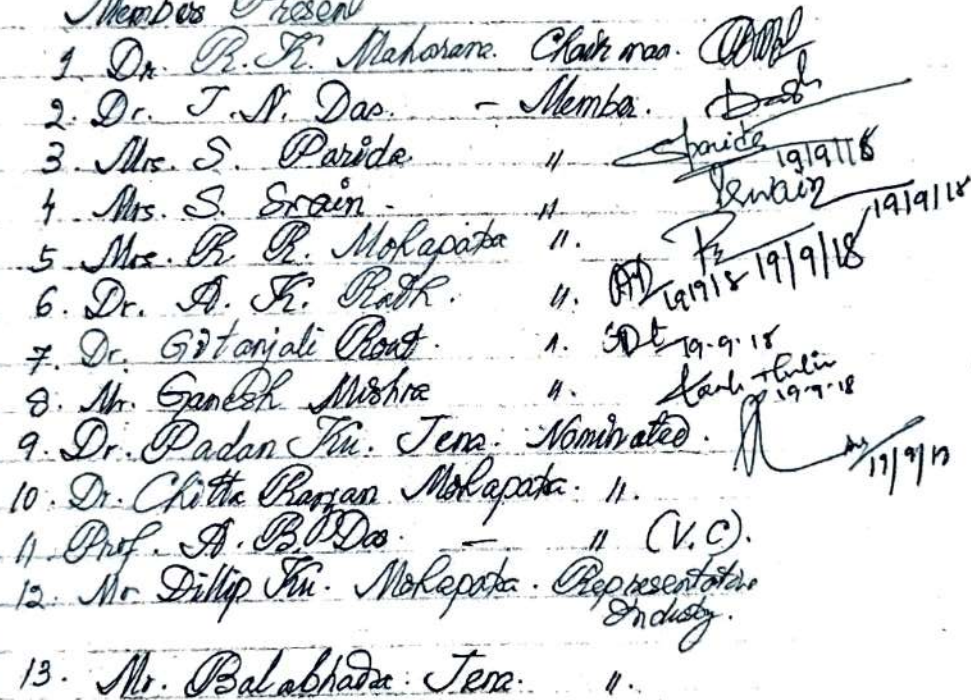 Members Present
1 Dr. R. K. Maharana. Chairman.
2. Dr. J. N. Das. - Member. Dash
3 Mrs. S. Parida " Sparida 19/9/18
4 Mrs. S. Swain - " Swain 19/9/18
5 Mrs. R R. Mohapatra ". 19/9/18
6. Dr. A. K. Rath. ". 19/9/18
7 Dr. Gitanjali Rout. ". 19.9.18
8. Mr. Ganesh Mishra ". 19.9.18
9. Dr. Padan Ku. Jena. Nominated.
10. Dr. Chitta Ranjan Mohapatra. ".
11 Prof. A. B. Das. - " (V.C).
12. Mr Dillip Ku. Mohapatra. Representative
Industry.
13. Mr. Balabhadra Jena. ".